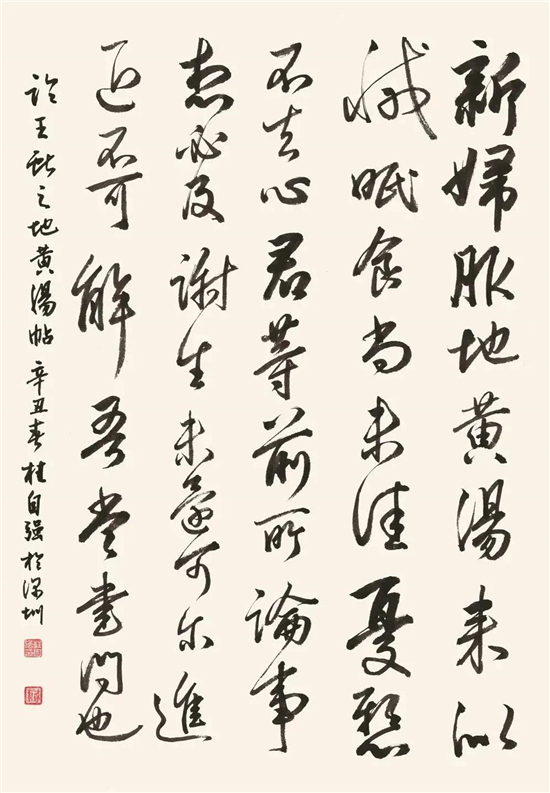 新婦服地黄湯来似
減眠食尚未佳憂懸
不去心君等前所論事
想必及謝生未還可尔進
退不可解吾當書問也
臨王献之地黄湯帖 辛丑春桂自强於深圳